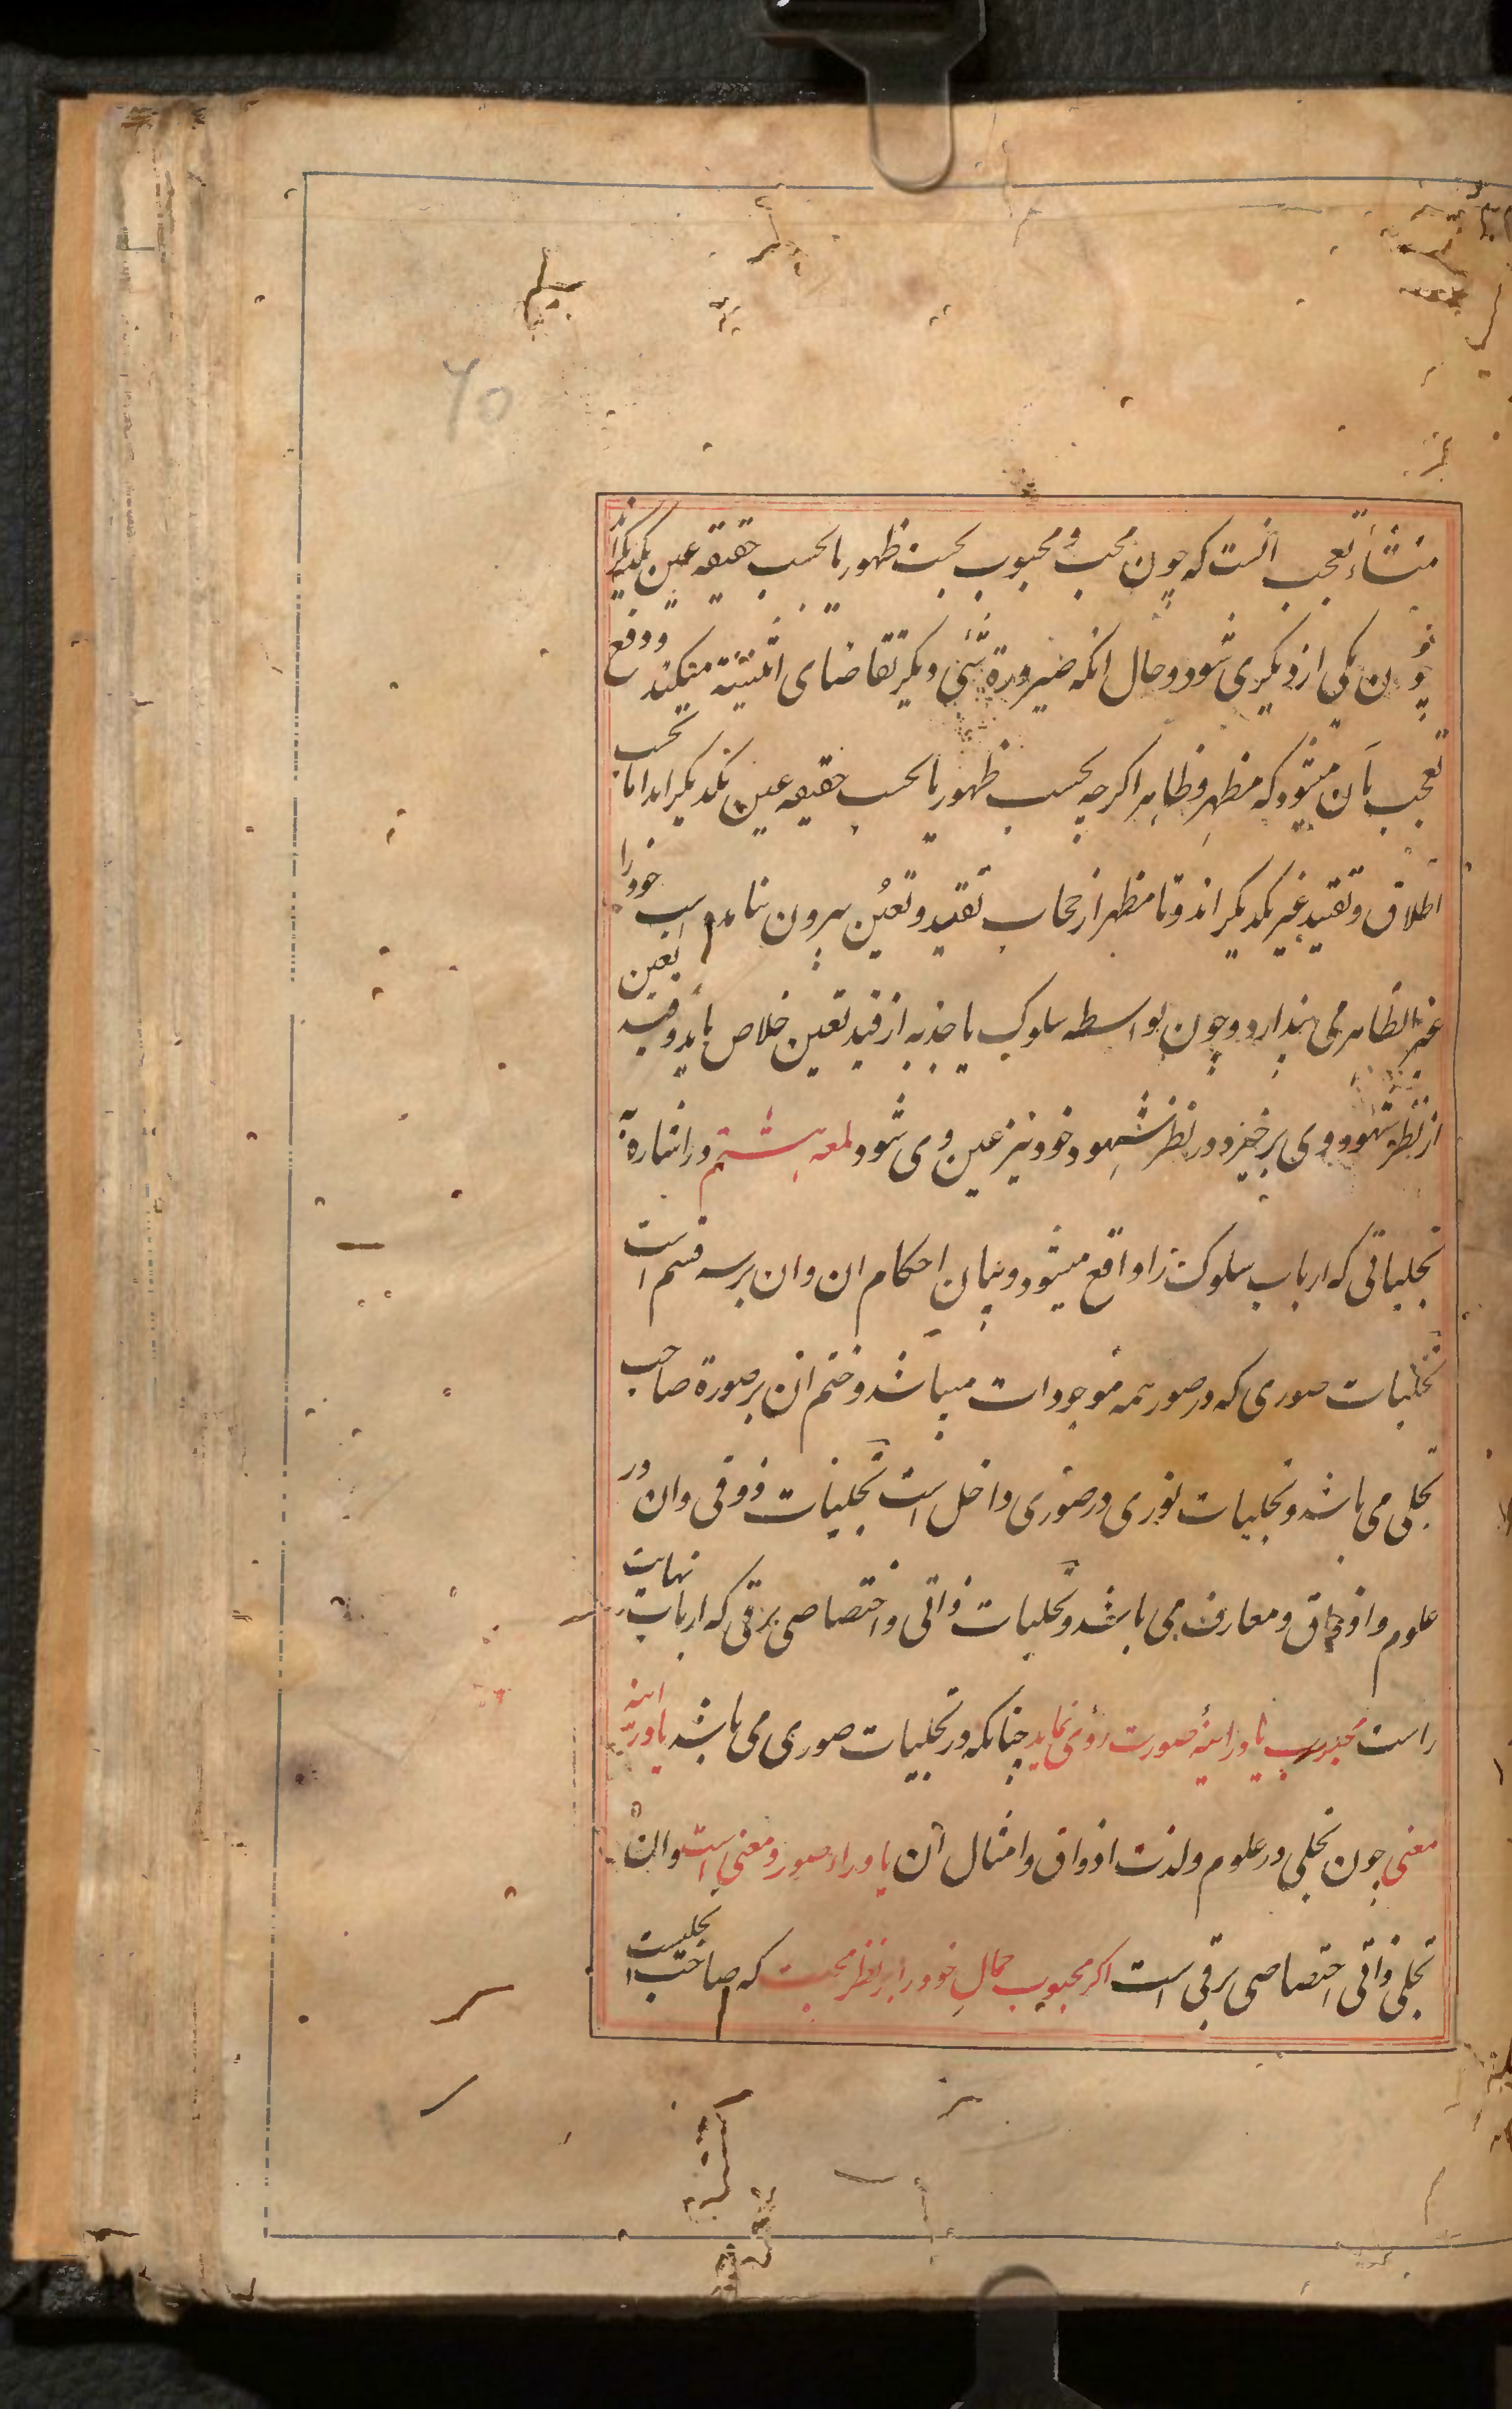 ۶۵
منشاء تعجب آنست که چون محب و محبوب بحسب ظهور یا بحسب حقیقه عین یکدیگراند
چون یکی از دیگری شود و حال آنکه ضیرورة شئی دیگر تقاضای اثنینیة میکند و دفع
تعجب بآن میشود که مظهر و ظاهر اکرچه بحسب ظهور یا بحسب حقیقه عین یکدیکراند اما بحسب
اطلاق و تقید غیر یکدیکراند و تا مظهر از حجاب تقید و تعین بیرون نیامده است خود را
غیر الظاهر می پندارد و چون بواسطه سلوک یا جذبه از قید تعین خلاص یابد و قید تعین
از نظر شهود وی برخیزد در نظر شهود خود نیز عین وی شود لمعه هشتم در اشاره به
تجلیاتی که ارباب سلوک را واقع میشود و بیان احکام ان و ان بر سه قسم است
تجلیات صوری که در صور همه موجودات میباشد و ختم ان بر صورة صاحب
تجلی می باشد و تجلیات نوری در صوری داخل است تجلیات ذوقی و ان در
علوم و اذواق و معارف می باشد و تجلیات ذاتی و اختصاصی برقی که ارباب نهایت
راست محبوب یا در اینهٔ صورت روی نماید چنانکه در تجلیات صوری می باشد یا در اینه
معنی چون تجلی در علوم و لذت اذواق و امثال آن یا وراء صور و معنی است و ان
تجلی ذاتی اختصاصی برقی است اکر محبوب جمال خود را بر نظر محبت که صاحب تجلیست